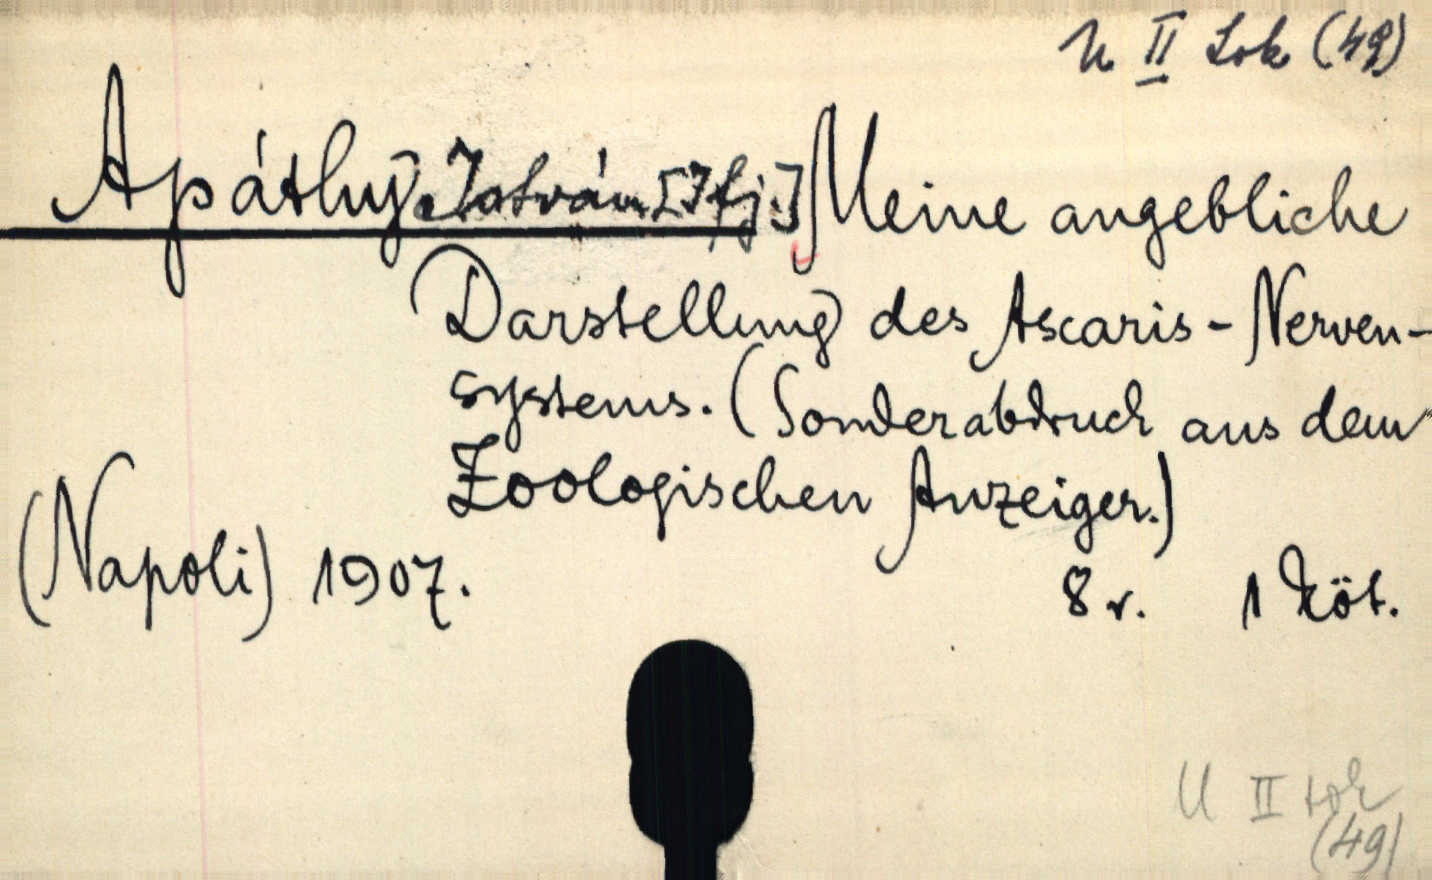 U II Sok (49)
Apáthy István [Ifj.] Meine angebliche
Darstellung des Ascaris-Nerven-
systems. (Sonderabdruck aus dem
Zoologischen Anzeiger.)
(Napoli) 1907.
8 r. 1 köt.
U II Sok
(49)